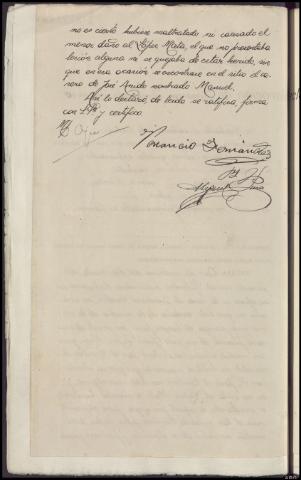 no es cierto hubiese maltratado ni causado el
menor daño al López Mata, el que no presentaba
lesion alguna ni se quejaba de estar herido, sin
que en esa ocasion se encontrase en el sitio el ca-
sero de José Amado nombrado Manuel.
Así lo declara, de leido se ratifica, firma
con S. Sª y certifico
Venancio Fernandez